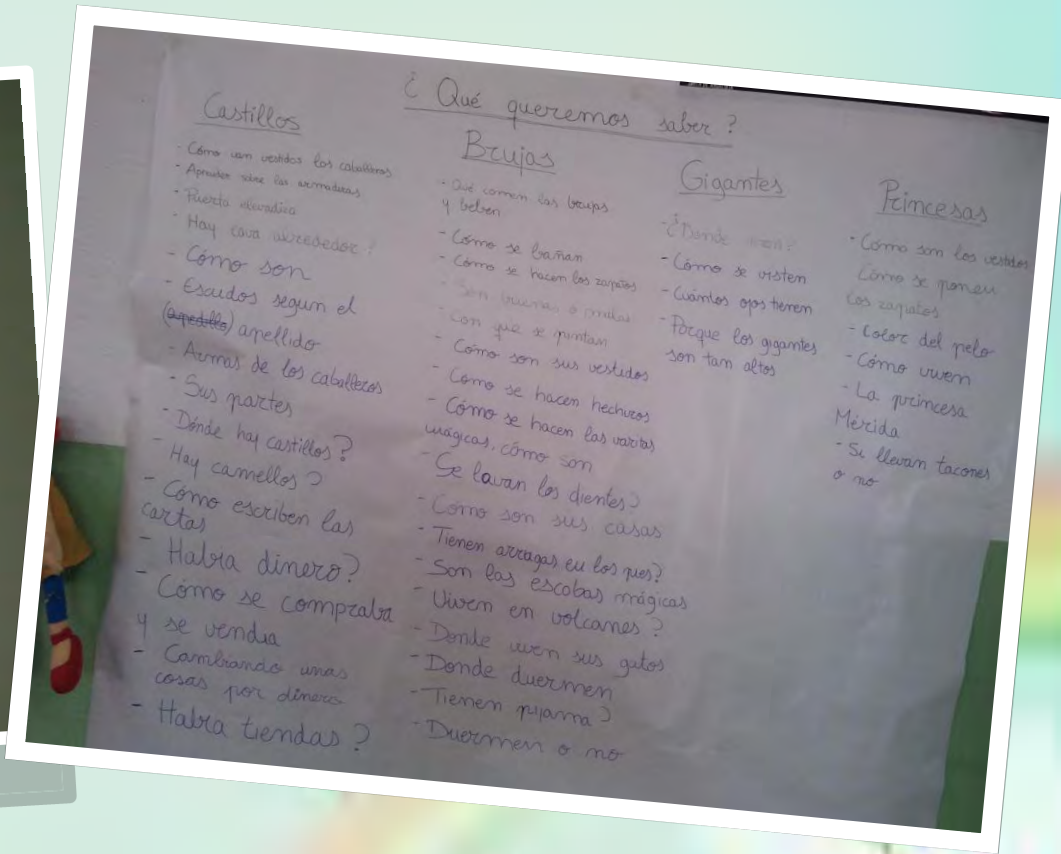 ¿Qué queremos saber?
Castillos
- Cómo van vestidos los caballeros
- Aprender sobre las armaduras
- Puerta elevadiza
- Hay cava alrededor?
- Cómo son
- Escudos segun el
(apedillo) apellido
- Armas de los caballeros
- Sus partes
- Dónde hay castillos?
- Hay camellos?
- Cómo escriben las
cartas
- Habia dinero?
- Cómo se compraba
y se vendia
- Cambiando unas
cosas por dinero
- Habia tiendas?
Brujas
- Qué comen las brujas
y beben
- Cómo se bañan
- Cómo se hacen los zapatos
- Son buenas o malas
- Con que se pintan
- Cómo son sus vestidos
- Cómo se hacen hechizos
- Cómo se hacen las varitas
mágicas, cómo son
- Se lavan los dientes?
- Cómo son sus casas
- Tienen arragas en los pies?
- Son las escobas mágicas
- Viven en volcanes?
- Donde viven sus gatos
- Donde duermen
- Tienen pijama?
- Duermen o no
Gigantes
- ¿Donde viven?
- Cómo se visten
- Cuántos ojos tienen
- Porque los gigantes
son tan altos
Princesas
- Cómo son los vestidos
Cómo se ponen
los zapatos
- Color del pelo
- Cómo viven
- La princesa
Mérida
- Si llevan tacones
o no